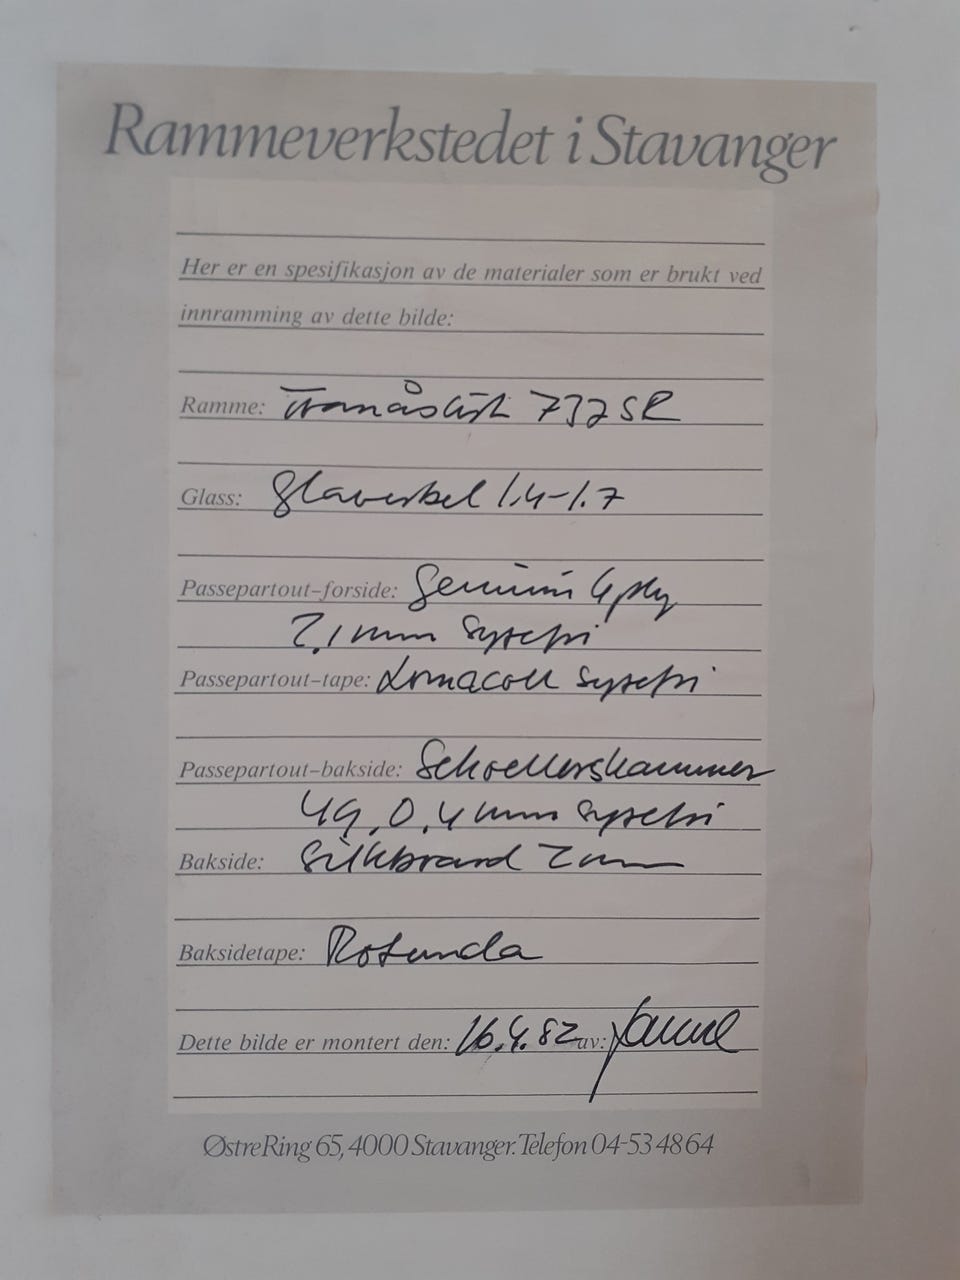 Rammeverkstedet i Stavanger
Her er en spesifikasjon av de materialer som er brukt ved
innramming av dette bilde:
Ramme: Tranåslist 732 SR
Glass: Glaverbel 1.4-1.7
Passepartout-forside: Gemini 4ply
2,1 mm syrefri
Passepartout-tape: Lomacoll syrefri
Passepartout-bakside: Schoellershammer
4G, 0,4 mm syrefri
Bakside: Silkbrand 2 mm
Baksidetape: Rotunda
Dette bilde er montert den: 16.4.82 av:
Østre Ring 65, 4000 Stavanger. Telefon 04-53 48 64